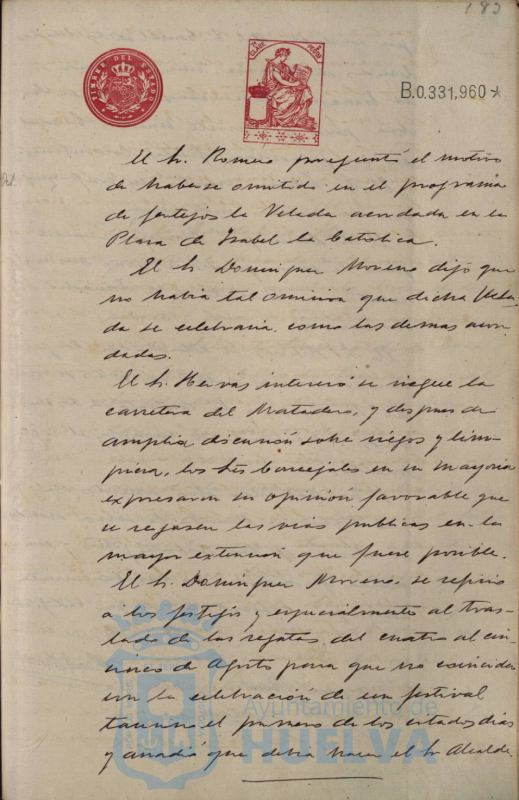 183
TIMBRE DEL ESTADO
CLASE
B.0.331,960
El Sr. Romero preguntó el motivo
de haberse omitido en el programa
de festejos la Velada acordada en la
Plaza de Isabel la Catolica.
El Sr. Dominguez Moreno dijo que
no habia tal omisión que dicha Vela-
da se celebraria como las demas acor-
dadas.
El Sr. Hervás interesó se riegue la
carretera del Matadero, y despues de
amplia discusión sobre riegos y lim-
pieza, los Sres Concejales en su mayoria
expresaron su opinión favorable que
se regasen las vias publicas en la
mayor extensión que fuere posible.
El Sr. Dominguez Moreno se refirió
a los festejos y especialmente al tras-
lado de las regatas del cuatro al cin-
cinco de Agosto para que no coincidan
con la celebración de un festival
taurino el primero de los citados dias
y añadió que debia hacer el Sr Alcalde
Ayuntamiento de
HUELVA